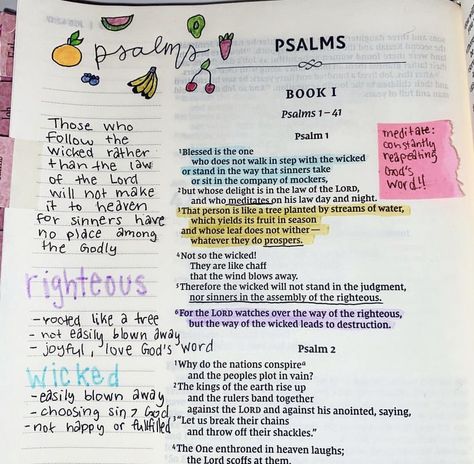 psalms
Those who
follow the
wicked rather
than the law
of the Lord
will not make
it to heaven
for sinners have
no place among
the Godly
righteous
- rooted like a tree
- not easily blown away
- joyful, love God's word
wicked
- easily blown away
- choosing sin > God
- not happy or fullfilled
PSALMS
BOOK I
Psalms 1–41
Psalm 1
1Blessed is the one
who does not walk in step with the wicked
or stand in the way that sinners take
or sit in the company of mockers,
2but whose delight is in the law of the LORD,
and who meditates on his law day and night.
3That person is like a tree planted by streams of water,
which yields its fruit in season
and whose leaf does not wither—
whatever they do prospers.
4Not so the wicked!
They are like chaff
that the wind blows away.
5Therefore the wicked will not stand in the judgment,
nor sinners in the assembly of the righteous.
6For the LORD watches over the way of the righteous,
but the way of the wicked leads to destruction.
Psalm 2
1Why do the nations conspirea
and the peoples plot in vain?
2The kings of the earth rise up
and the rulers band together
against the LORD and against his anointed, saying,
3"Let us break their chains
and throw off their shackles."
4The One enthroned in heaven laughs;
the Lord scoffs at them.
meditate:
constantly
reapeating
God's
word!!